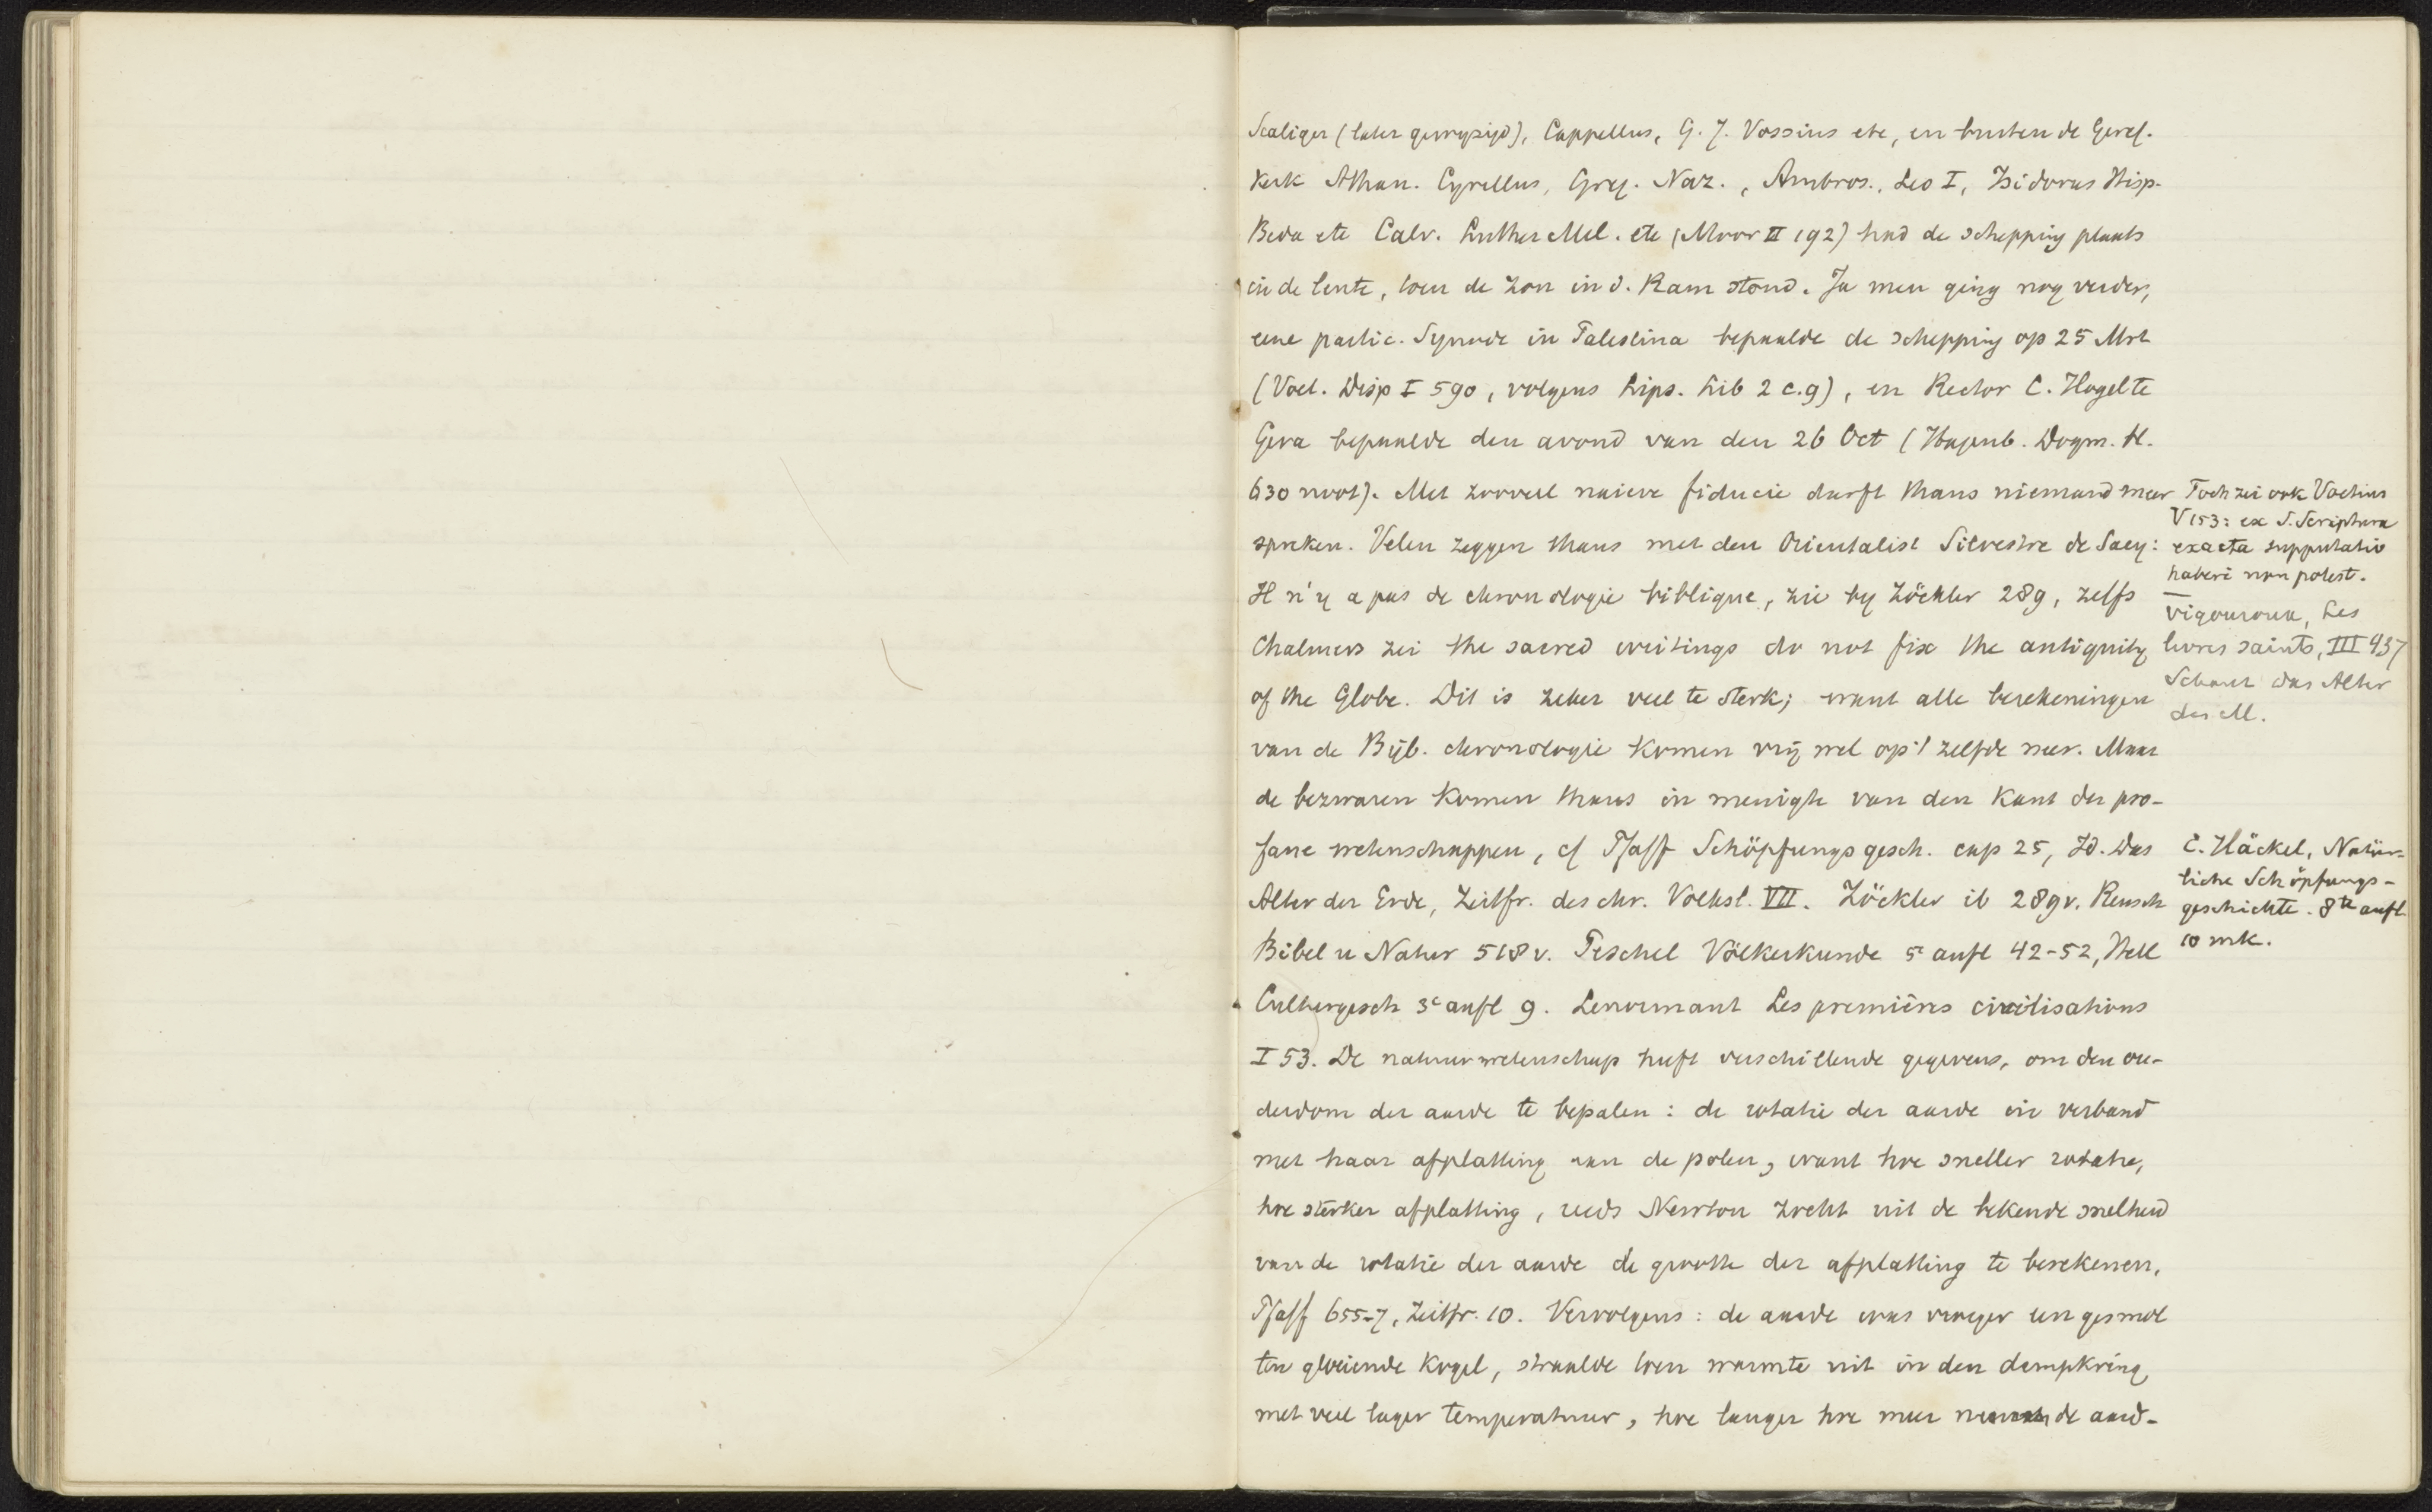 Scaliger (later gewijzigd), Cappellus, G. J. Vossius etc, en buiten de Geref.
Kerk Athan. Cyrillus, Greg. Naz., Ambros., Leo I, Isidorus Hisp.
Beda etc Calv. Luther Mel. etc (Moor II 192) had de schepping plaats
in de lente, toen de zon in d. Ram stond. Ja men ging nog verder,
eene partic. Synode in Palestina bepaalde de schepping op 25 Mrt
(Voet. Disp I 590, volgens Lips. Lib 2 c.9), en Rector C. Hogel te
Gera bepaalde den avond van den 26 Oct (Hagenb. Dogm. H.
630 noot). Met zooveel naieve fiducie durft thans niemand meer
spreken. Velen zeggen thans met den Orientalist Silvestre de Sacy:
Il n'y a pas de chronologie biblique, zie by Zöckler 289, zelfs
Chalmers zei the sacred writings do not fix the antiquity
of the Globe. Dit is zeker veel te sterk; want alle berekeningen
van de Bijb. chronologie komen vrij wel op 't zelfde neer. Maar
de bezwaren komen thans in menigte van den kant der pro-
fane wetenschappen, cf Pfaff Schöpfungsgesch. cap 25, Id. Das
Alter der Erde, Zeitfr. des chr. Volksl. VII. Zöckler ib 289v. Reusch
Bibel u Natur 518v. Peschel Völkerkunde 5e aufl 42-52, Hell
Culturgesch 3e aufl 9. Lenormant Les premières civilisations
I 53. De natuurwetenschap heeft verschillende gegevens, om den ou-
derdom der aarde te bepalen: de rotatie der aarde in verband
met haar afplatting aan de polen, want hoe sneller rotatie,
hoe sterker afplatting, reeds Newton zocht uit de bekende snelheid
van de rotatie der aarde de grootte der afplatting te berekenen,
Pfaff 655-7, Zeitfr. 10. Vervolgens: de aarde was vroeger een gesmol
ten gloeiende kogel, straalde toen warmte uit in den dampkring
met veel lager temperatuur, hoe langer hoe meer de aard-
Toch zei ook Voetius
V 153: ex S. Scriptura
exacta supputatio
haberi non potest.
Vigouroux, Les
livres saints, III 437
Schanz das Alter
des M.
E. Häckel, Natür-
liche Schöpfungs-
geschichte. 8te aufl
10 mk.